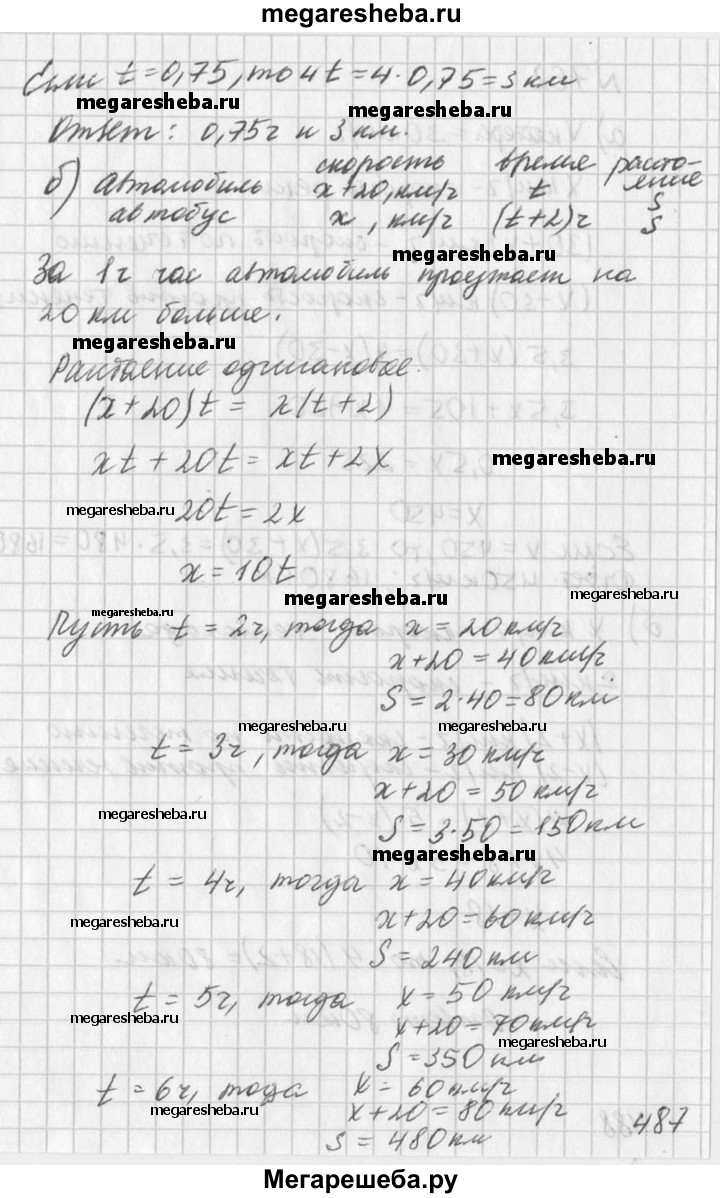 megaresheba.ru
Если t = 0,75, то 4t = 4·0,75 = 3 км
megaresheba.ru megaresheba.ru
Ответ: 0,75 ч и 3 км.
скорость время расстояние
б) автомобиль x+20, км/ч t S
автобус x, км/ч (t+2)ч S
megaresheba.ru
За 1 г час автомобиль проезжает на
20 км больше.
megaresheba.ru
Расстояние одинаковое.
(x+20)t = x(t+2)
xt + 20t = xt + 2x
megaresheba.ru
megaresheba.ru 20t = 2x
x = 10t
megaresheba.ru megaresheba.ru
megaresheba.ru
Пусть t = 2ч, тогда x = 20 км/ч
x+20 = 40 км/ч
S = 2·40 = 80 км
megaresheba.ru megaresheba.ru
t = 3ч, тогда x = 30 км/ч
x+20 = 50 км/ч
megaresheba.ru
S = 3·50 = 150 км
megaresheba.ru
t = 4ч, тогда x = 40 км/ч
megaresheba.ru x+20 = 60 км/ч
S = 240 км
t = 5ч, тогда x = 50 км/ч
megaresheba.ru x+20 = 70 км/ч
megaresheba.ru
S = 350 км
t = 6ч, тогда x = 60 км/ч
megaresheba.ru x+20 = 80 км/ч
487
S = 480 км
Мегарешеба.ру